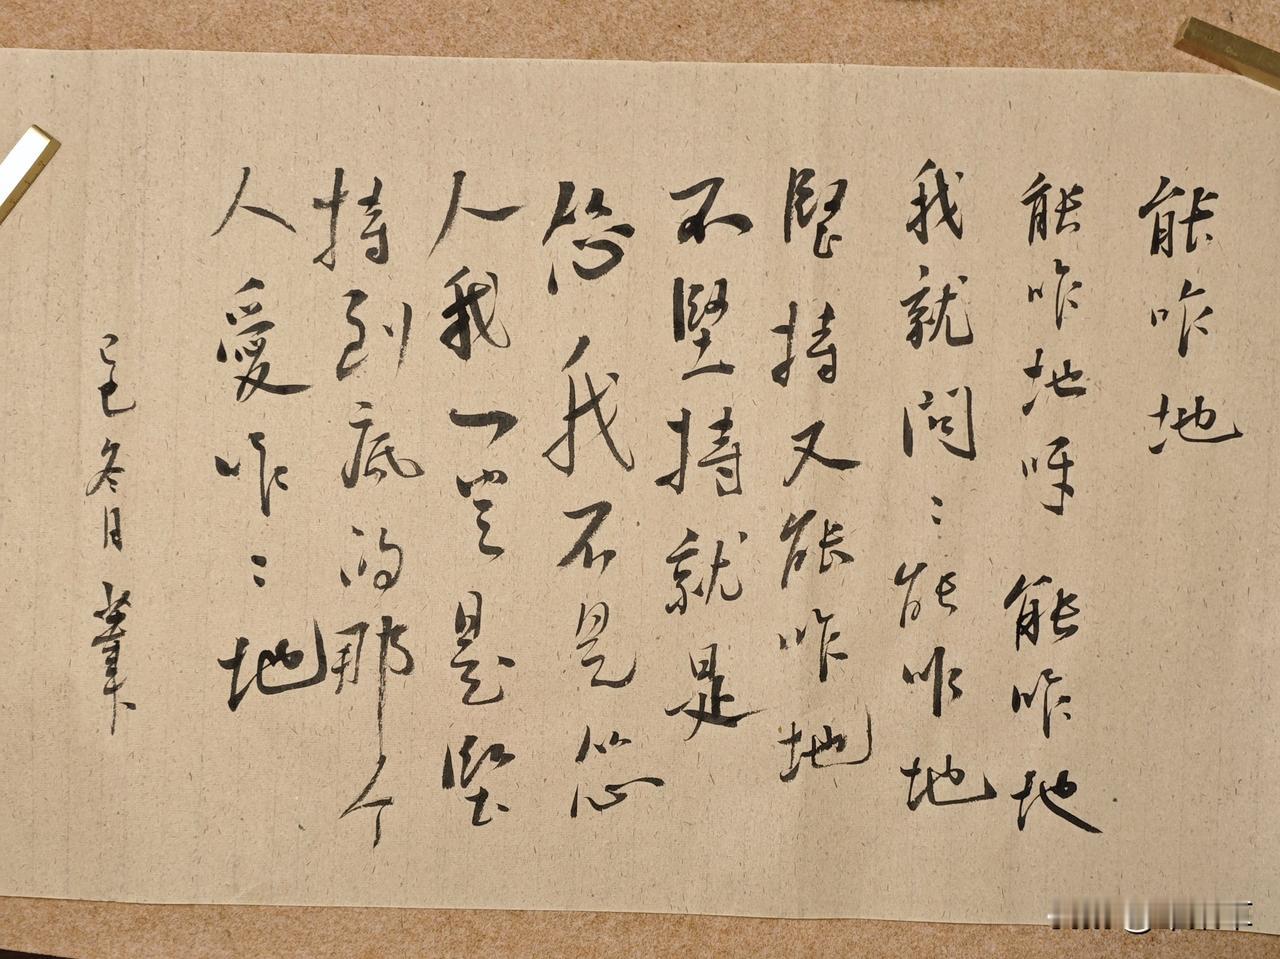 能咋地
能咋地呀 能咋地
我就問〻能咋地
堅持又能咋地
不堅持就是
怂 我不是怂
人我一定是堅
持到底的那个
人愛咋〻地
乙巳冬月